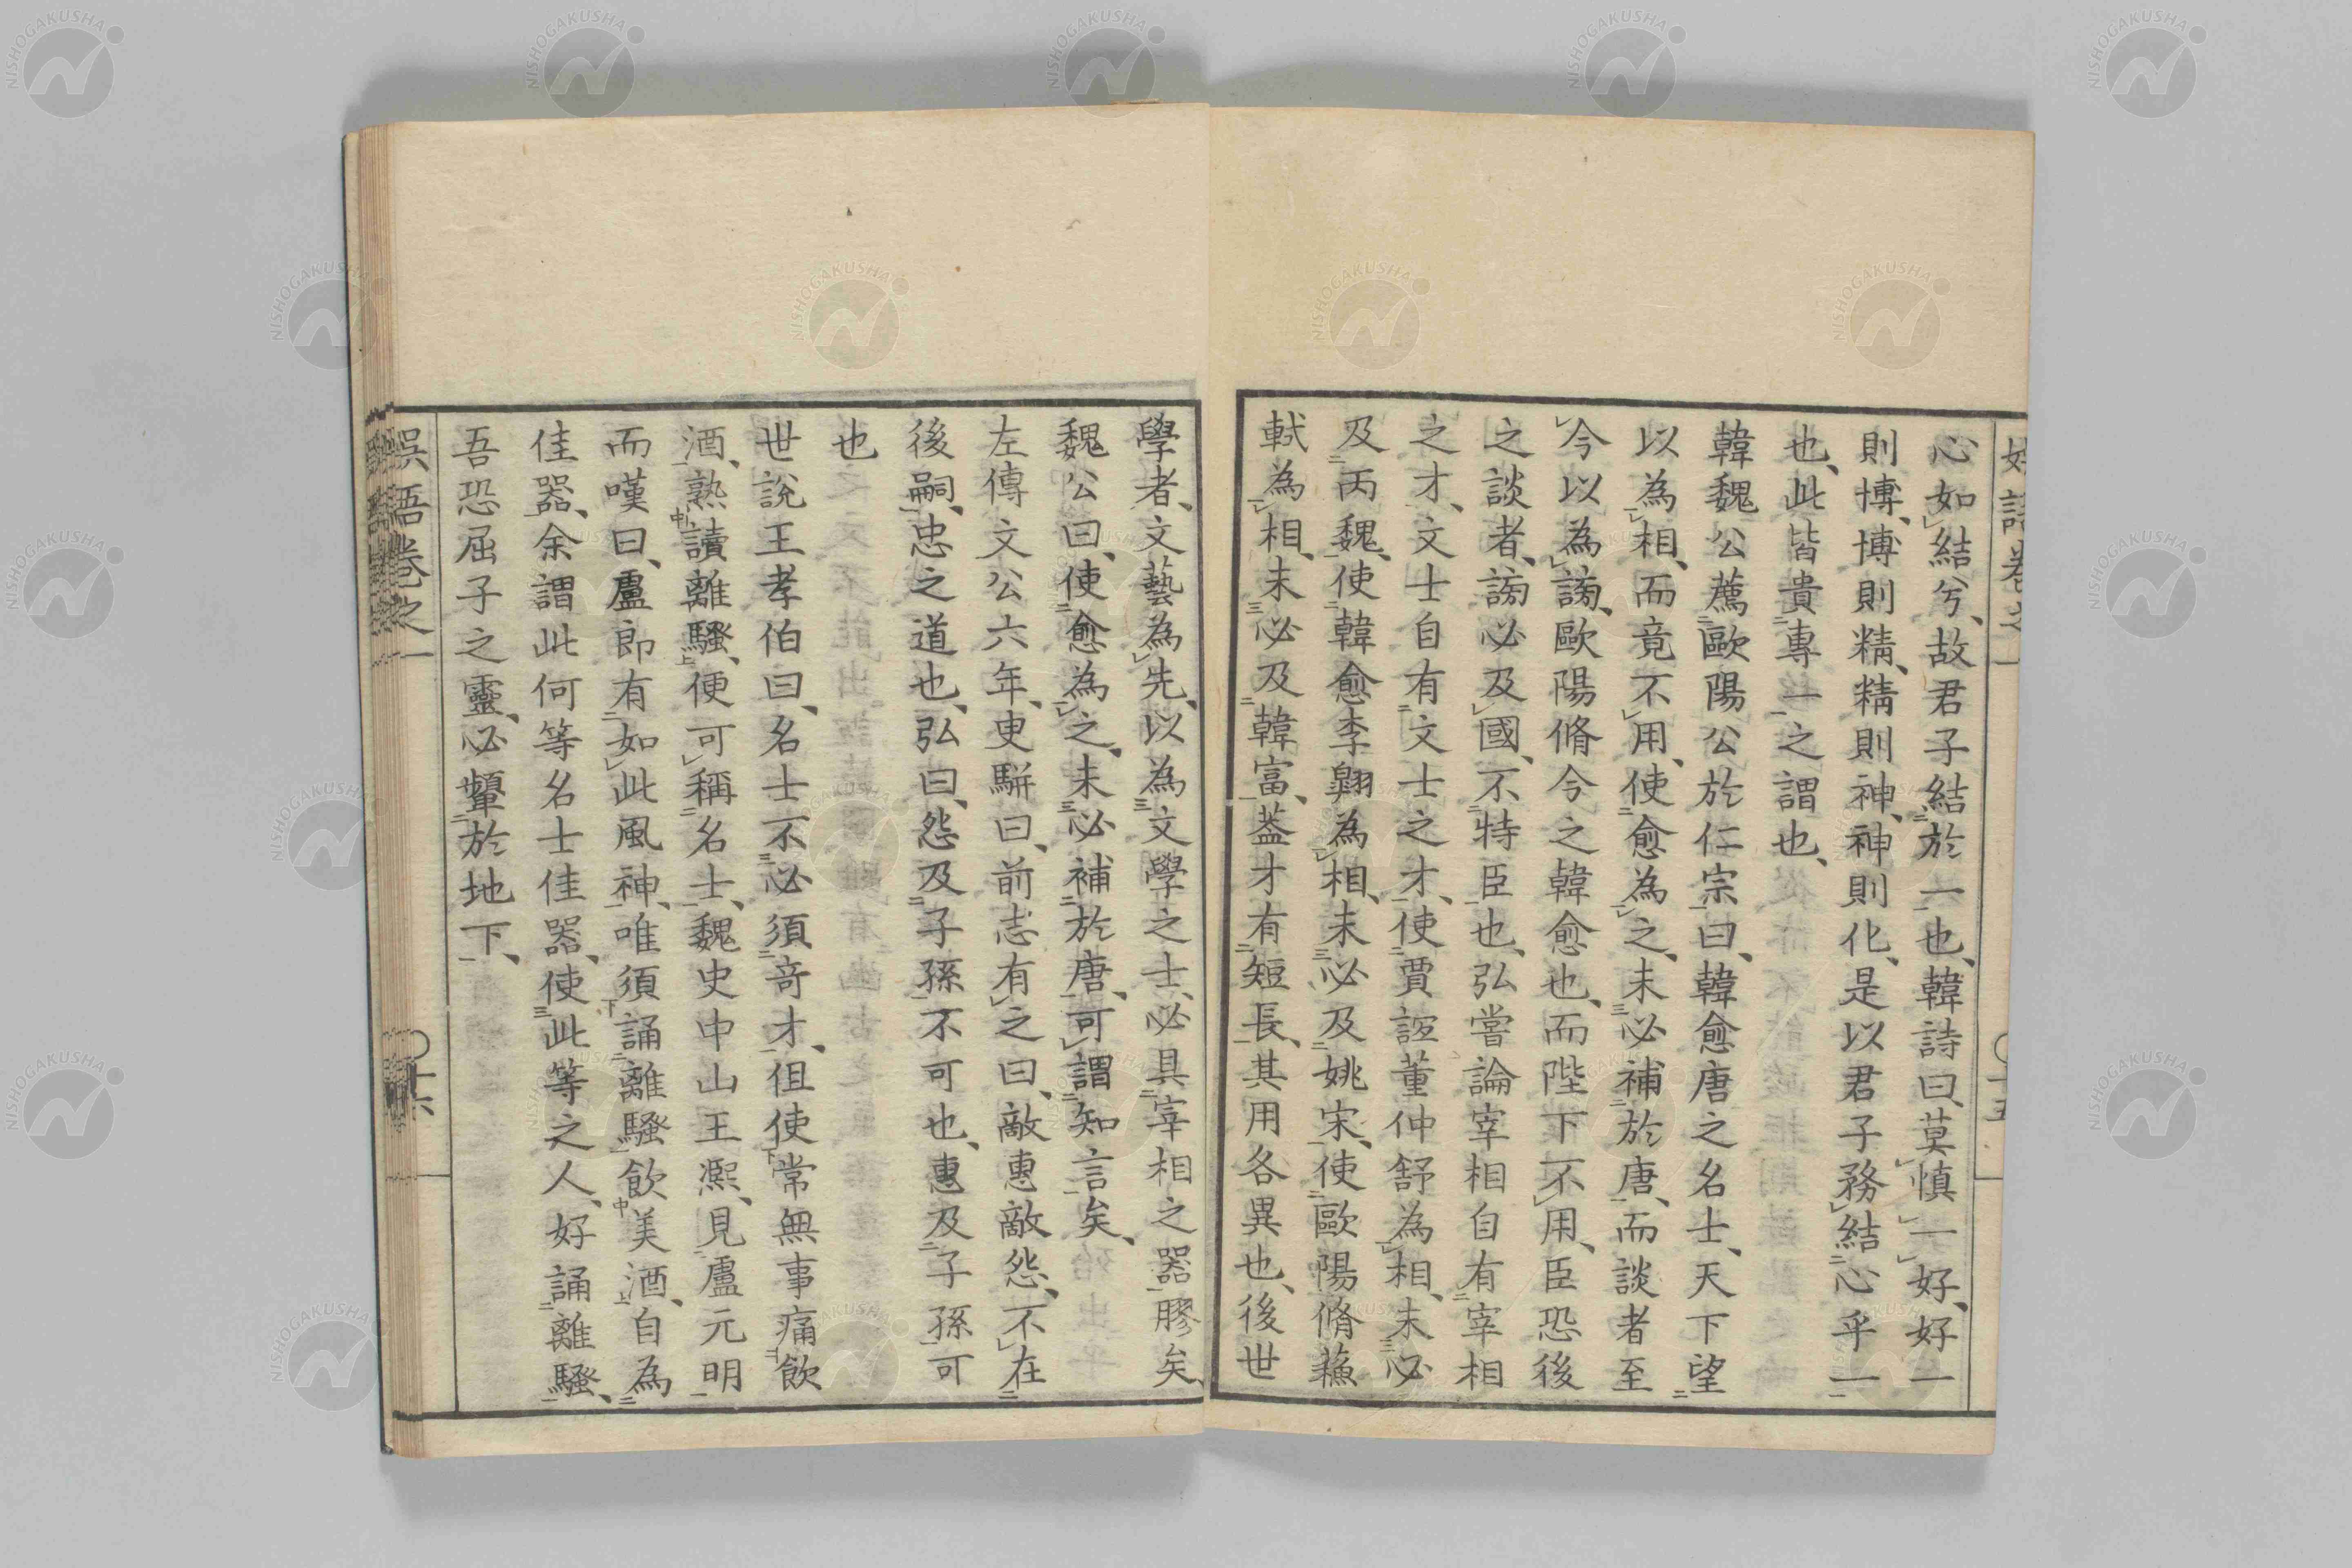 心如結兮、故君子結於一也、韓詩曰、莫慎一好、好一
則博、博則精、精則神、神則化、是以君子務結心乎一
也、此皆貴專一之謂也、
韓魏公薦歐陽公於仁宗曰、韓愈唐之名士、天下望
以為相、而竟不用、使愈為之、未必補於唐、而談者至
今以為謗、歐陽脩今之韓愈也、而陛下不用、臣恐後
之談者、謗必及國、不特臣也、弘嘗論宰相自有宰相
之才、文士自有文士之才、使賈誼董仲舒為相、未必
及丙魏、使韓愈李翱為相、未必及姚宋、使歐陽脩蘓
軾為相、未必及韓富、葢才有短長、其用各異也、後世
學者、文藝為先、以為文學之士、必具宰相之器膠矣、
魏公曰、使愈為之、未必補於唐、可謂知言矣、
左傳文公六年、臾駢曰、前志有之曰、敵惠敵怨、不在
後嗣、忠之道也、弘曰、怨及子孫不可也、惠及子孫可
也
世說王孝伯曰、名士不必須奇才、但使常無事痛飲
酒、熟讀離騷、便可稱名士、魏史中山王熙、見盧元明
而嘆曰、盧郎有如此風神、唯須誦離騷飲美酒、自為
佳器、余謂此何等名士佳器、使此等之人、好誦離騷、
吾恐屈子之靈、必顰於地下、
卷之一
十六